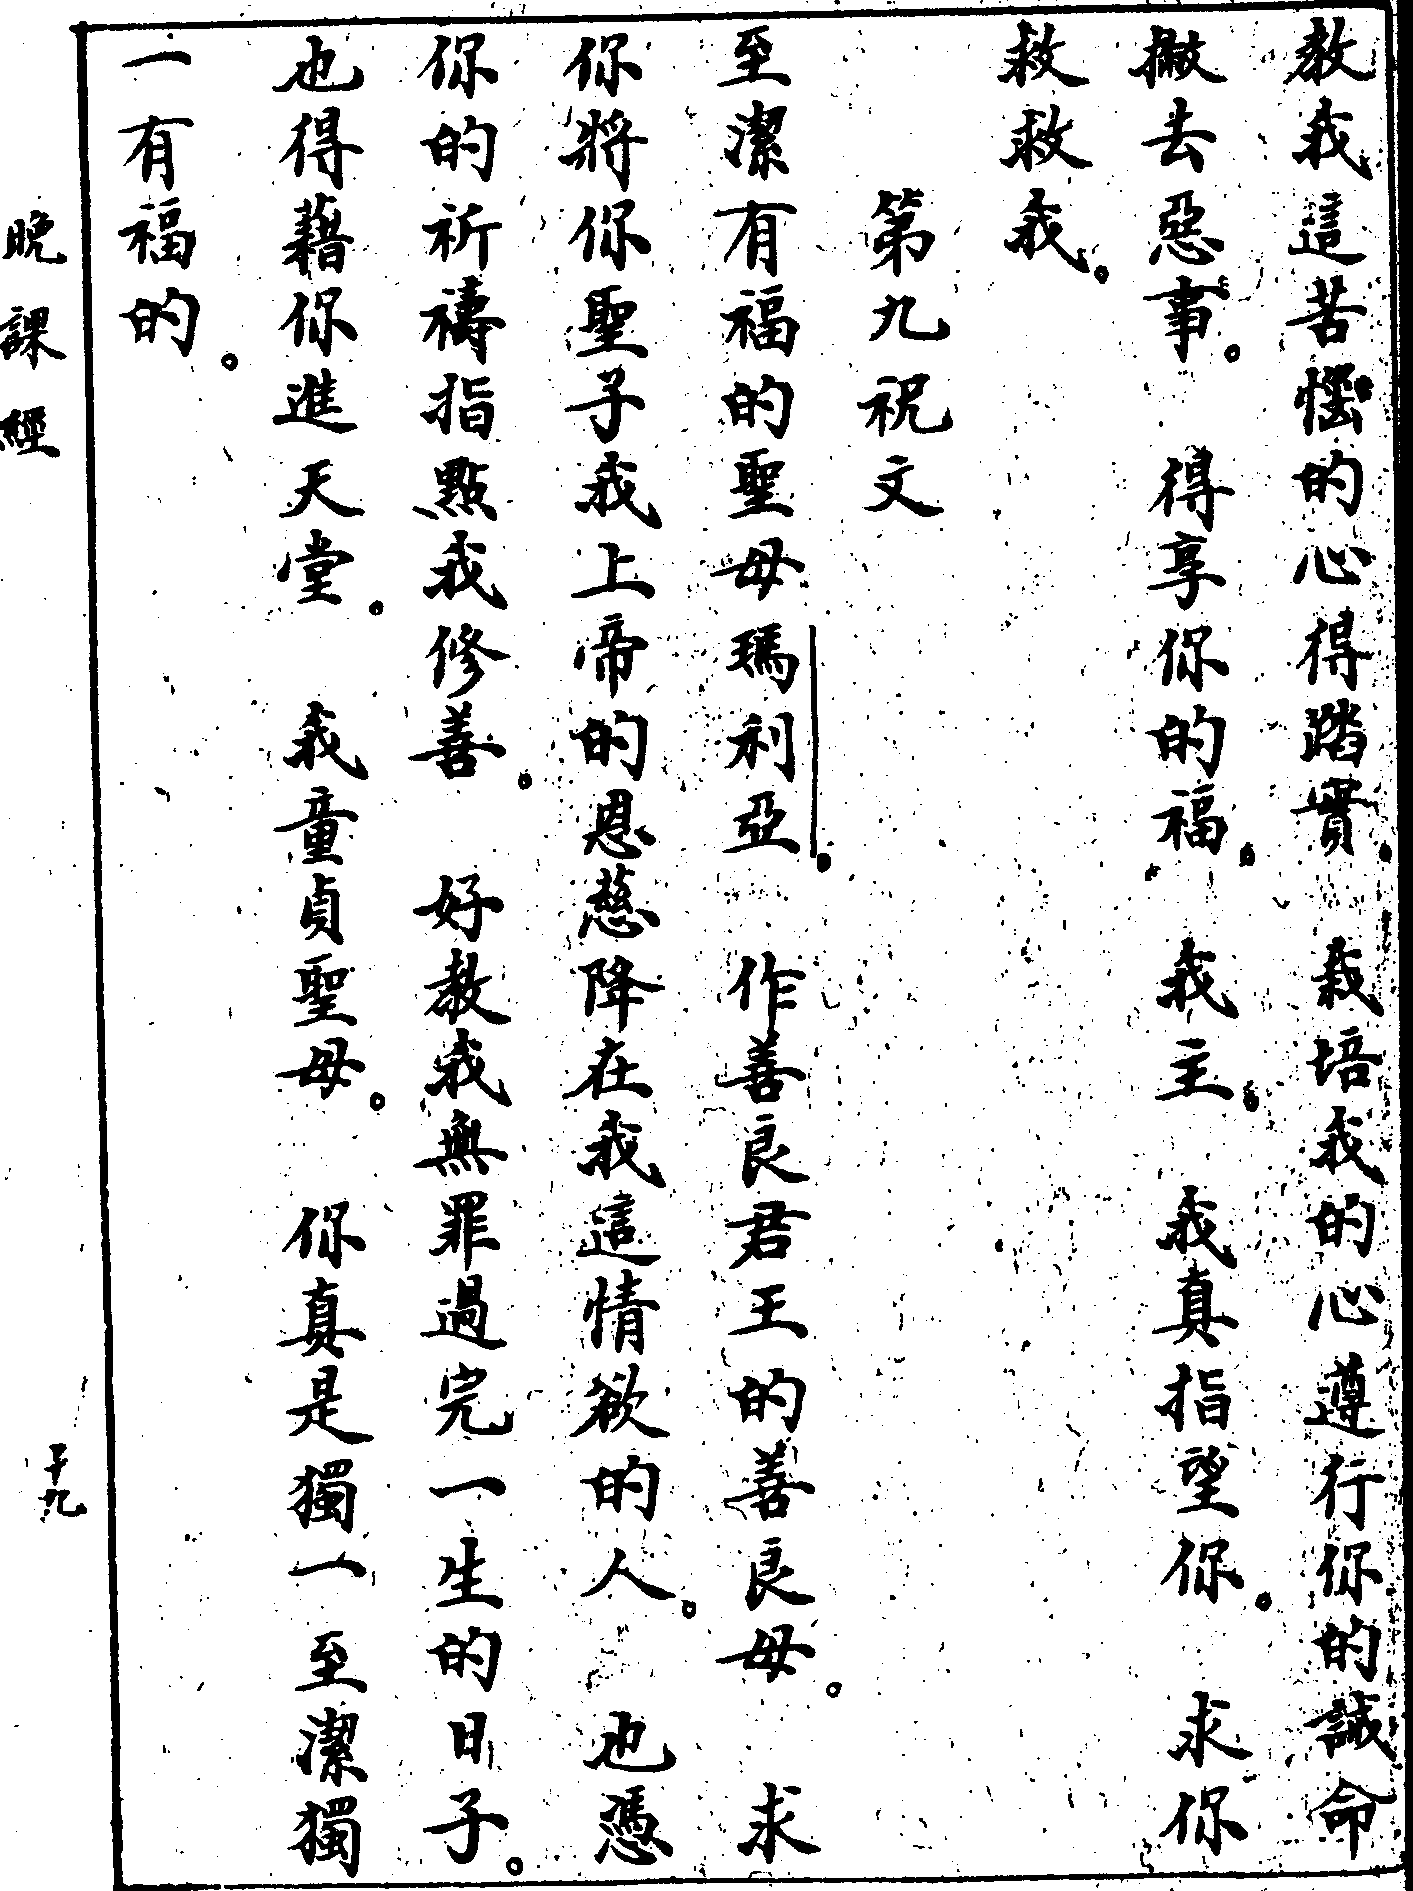 教我這苦惱的心得踏實。栽培我的心遵行你的誡命
撇去惡事。得享你的福。我主。我真指望你。求你
救救我。
第九祝文
至潔有福的聖母瑪利亞。作善良君王的善良母。求
你將你聖子我上帝的恩慈降在我這情欲的人。也憑
你的祈禱指點我修善。好教我無罪過完一生的日子。
也得藉你進天堂。我童貞聖母。你真是獨一至潔獨
一有福的。
晚課經
十九